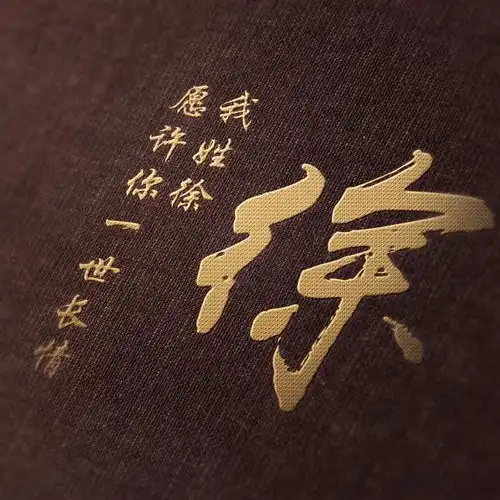 徐
我姓徐
愿许你一世长情